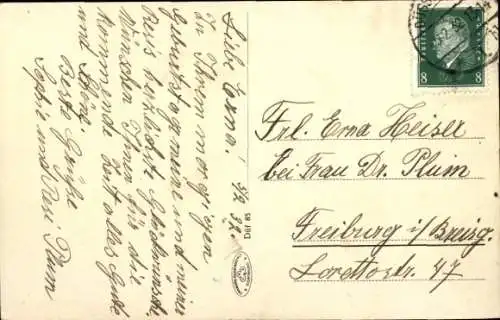 Liebe Erna! 5/2 32.
Zu Ihrem morgigen
Geburtstage meine und meiner
Resi herzlichste Glückwünsche.
Wünschen Ihnen für die
kommende Zeit alles Gute
und Schöne.
Beste Grüße
Sophie und Resi Plum
Düf 85
8 8
Frl. Erna Heiser
bei Frau Dr. Plum
Freiburg i/Breisg.
Lorettostr. 47